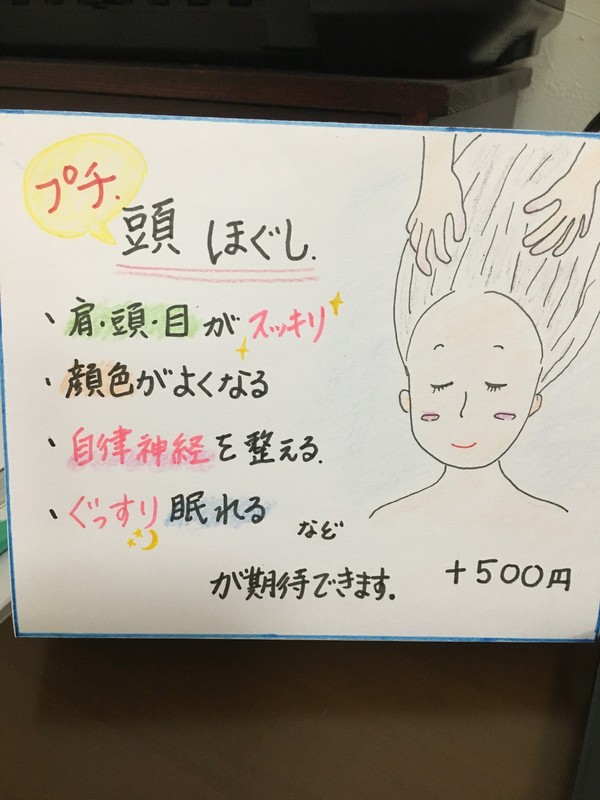 プチ.
頭 ほぐし.
・肩・頭・目がスッキリ
・顔色がよくなる
・自律神経を整える.
・ぐっすり眠れる
など
が期待できます.
+500円